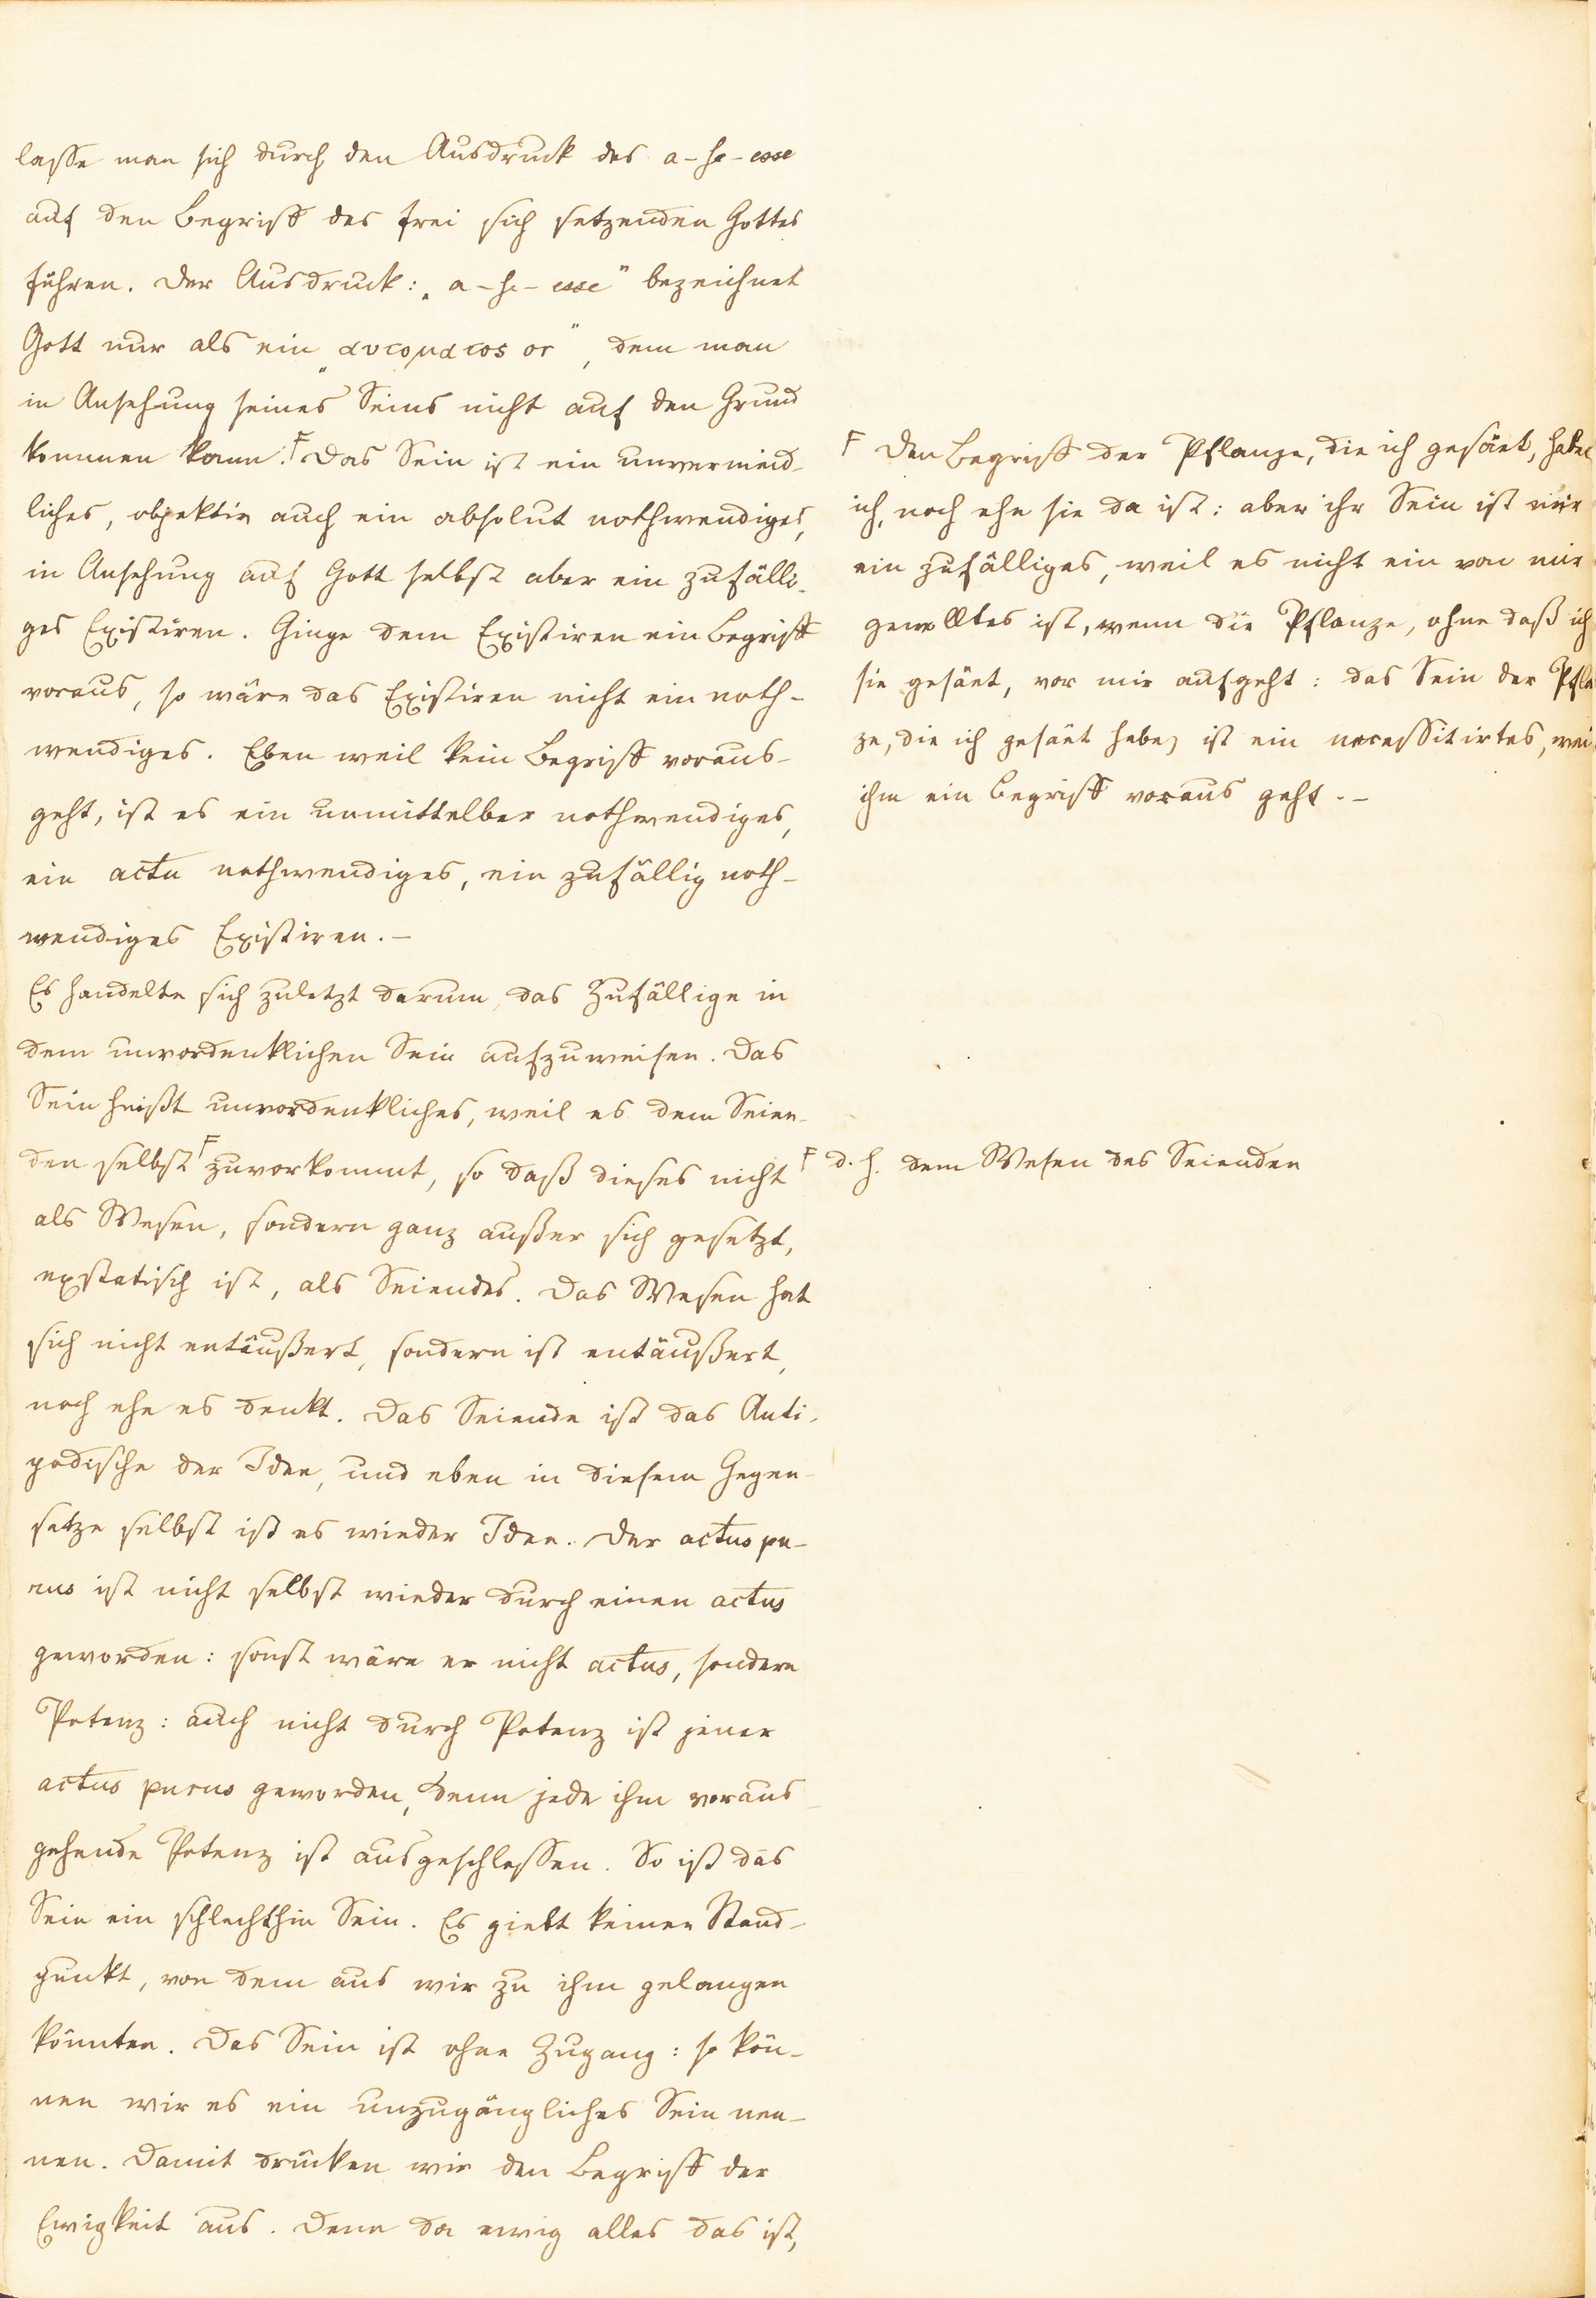 lasse man sich durch den Ausdruck des a-se-esse
auf den Begriff des frei sich setzenden Gottes
führen. Der Ausdruck: „a-se-esse" bezeichnet
Gott nur als ein „αυτοματος ον", dem man
in Ansehung seines Seins nicht auf den Grund
kommen kann. F Das Sein ist ein unvermeid-
liches, objektiv auch ein absolut nothwendiges,
in Ansehung auf Gott selbst aber ein zufälli-
ges Existiren. Ginge dem Existiren ein Begriff
voraus, so wäre das Existiren nicht ein noth-
wendiges. Eben weil kein Begriff voraus-
geht, ist es ein unmittelbar nothwendiges,
ein actu nothwendiges, ein zufällig noth-
wendiges Existiren.-
Es handelte sich zuletzt darum, das Zufällige in
dem unvordenklichen Sein aufzuweisen. Das
Sein heißt unvordenkliches, weil es dem Seien-
den selbst F zuvorkommt, so daß dieses nicht
als Wesen, sondern ganz außer sich gesetzt,
exstatisch ist, als Seiendes. Das Wesen hat
sich nicht entäußert, sondern ist entäußert,
noch ehe es denkt. Das Seiende ist das Anti-
podische der Idee, und eben in diesem Gegen-
satze selbst ist es wieder Idee. Der actus pu-
rus ist nicht selbst wieder durch einen actus
geworden: sonst wäre er nicht actus, sondern
Potenz: auch nicht durch Potenz ist jener
actus purus geworden, denn jede ihm voraus-
gehende Potenz ist ausgeschlossen. So ist das
Sein ein schlechthin Sein. Es giebt keinen Stand-
punkt, von dem aus wir zu ihm gelangen
könnten. Das Sein ist ohne Zugang: so kön-
nen wir es ein unzugängliches Sein nen-
nen. Damit drücken wir den Begriff der
Ewigkeit aus. Denn da ewig alles das ist,
F Den Begriff der Pflanze, die ich gesäet, habe
ich, noch ehe sie da ist: aber ihr Sein ist mir
ein zufälliges, weil es nicht ein von mir
gewolltes ist, wenn die Pflanze, ohne daß ich
sie gesäet, vor mir aufgeht: das Sein der Pfla
ze, die ich gesäet habe, ist ein necessitirtes, wei
ihm ein Begriff voraus geht.-
F d. h. dem Wesen des Seienden